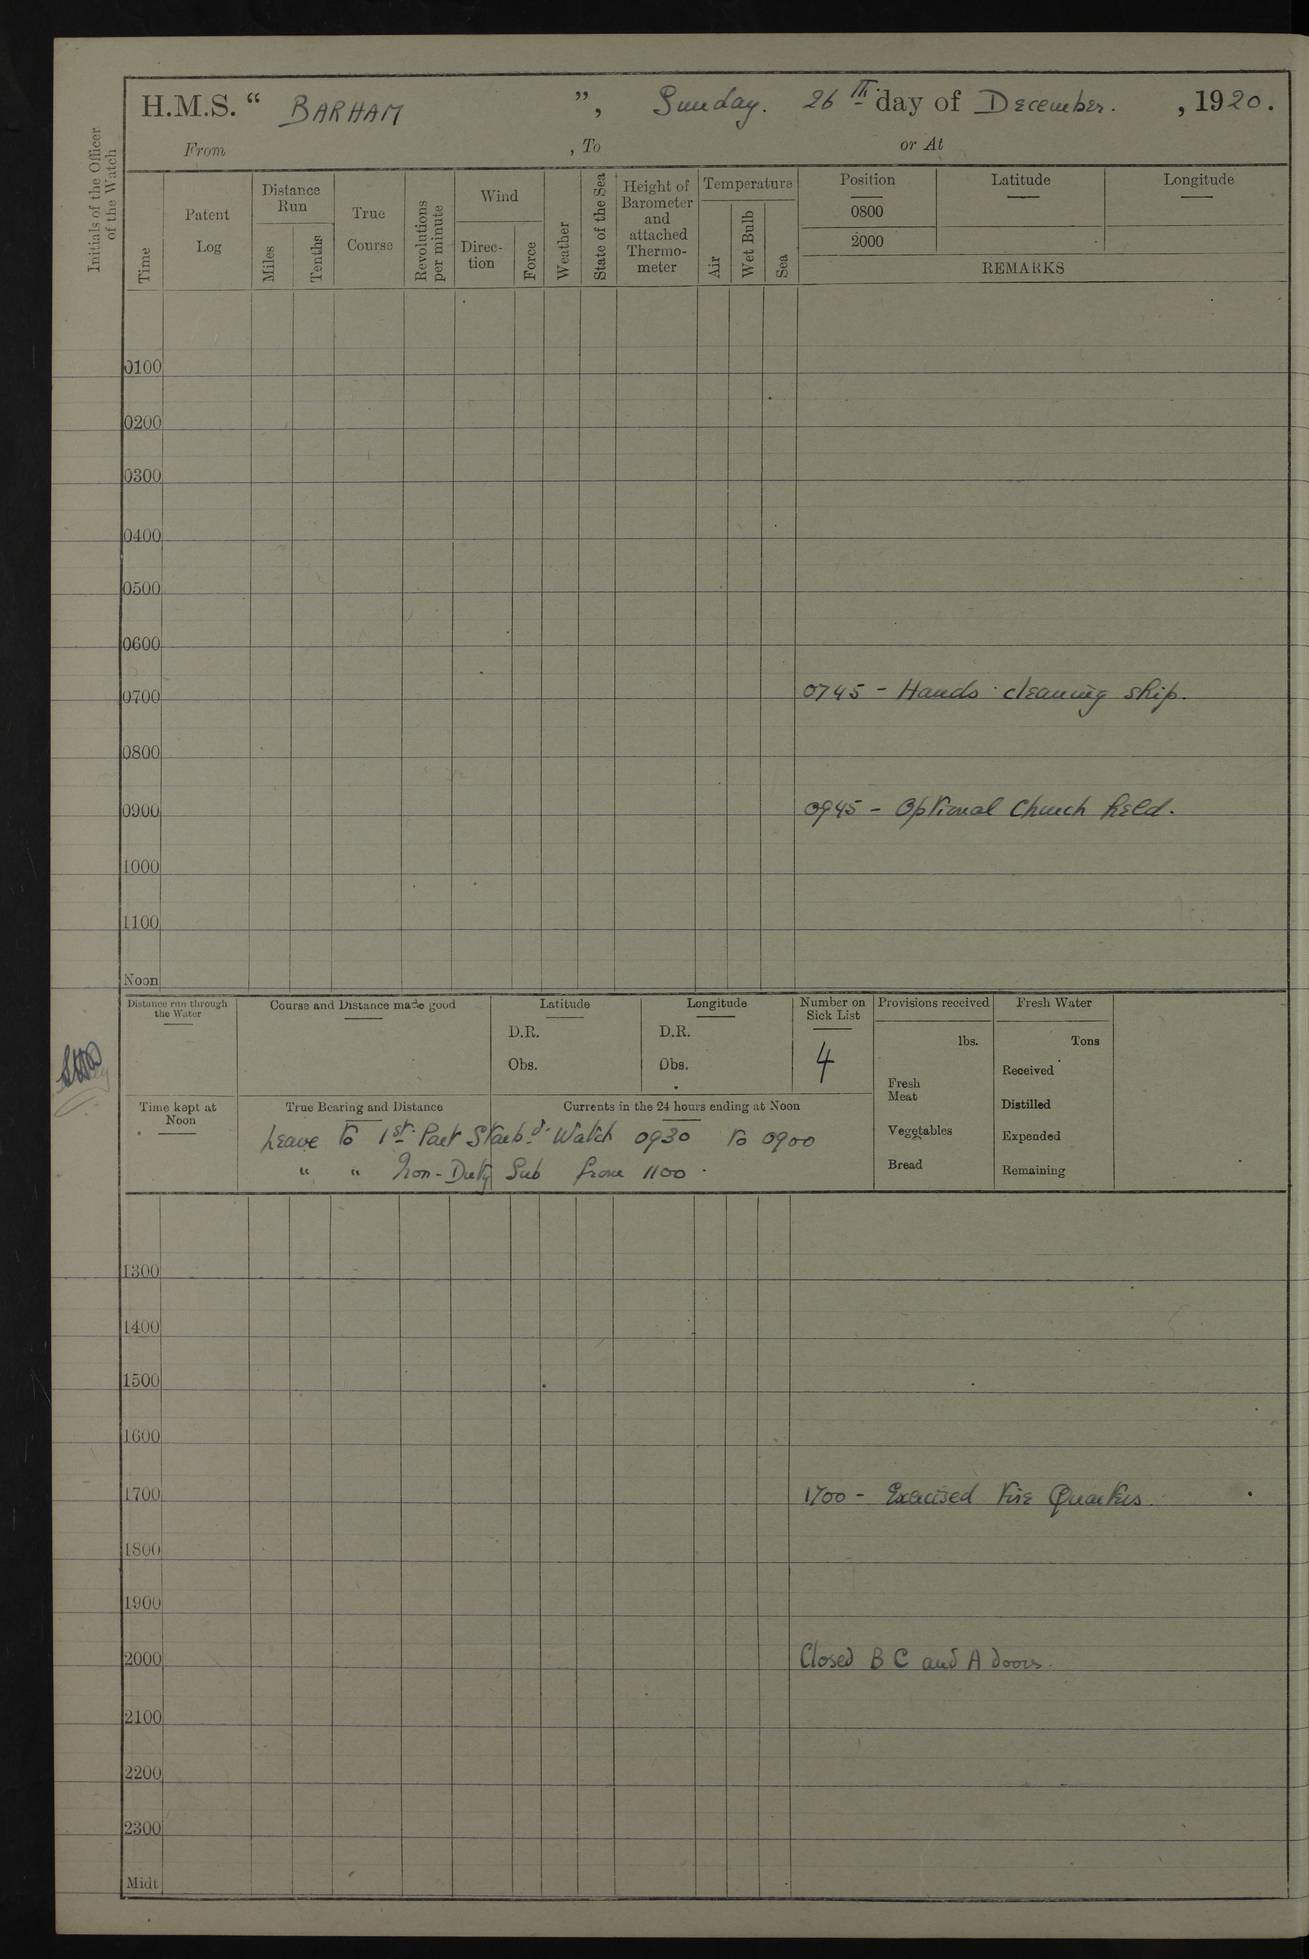 H.M.S. “ BARHAM ”, Sunday. 26th day of December. , 1920.
From , To or At
Initials of the Officer of the Watch
Time
Patent Log
Distance Run
Miles
Tenths
True Course
Revolutions per minute
Wind
Direc-tion
Force
Weather
State of the Sea
Height of Barometer and attached Thermo-meter
Temperature
Air
Wet Bulb
Sea
Position Latitude Longitude
0800
2000
REMARKS
0100
0200
0300
0400
0500
0600
0700 0745 - Hands cleaning ship.
0800
0900 0945 - Optional Church held.
1000
1100
Noon
Distance run through the Water
Course and Distance made good
Latitude
D.R.
Obs.
Longitude
D.R.
Obs.
Number on Sick List
4
Provisions received
lbs.
Fresh Meat
Vegetables
Bread
Fresh Water
Tons
Received
Distilled
Expended
Remaining
Time kept at Noon
True Bearing and Distance
Currents in the 24 hours ending at Noon
Leave to 1st. Part Starbd. Watch 0930 to 0900
“ “ Non-Duty Sub from 1100.
1300
1400
1500
1600
1700 1700 - Exercised Fire Quarters.
1800
1900
2000 Closed B C and A doors.
2100
2200
2300
Midt